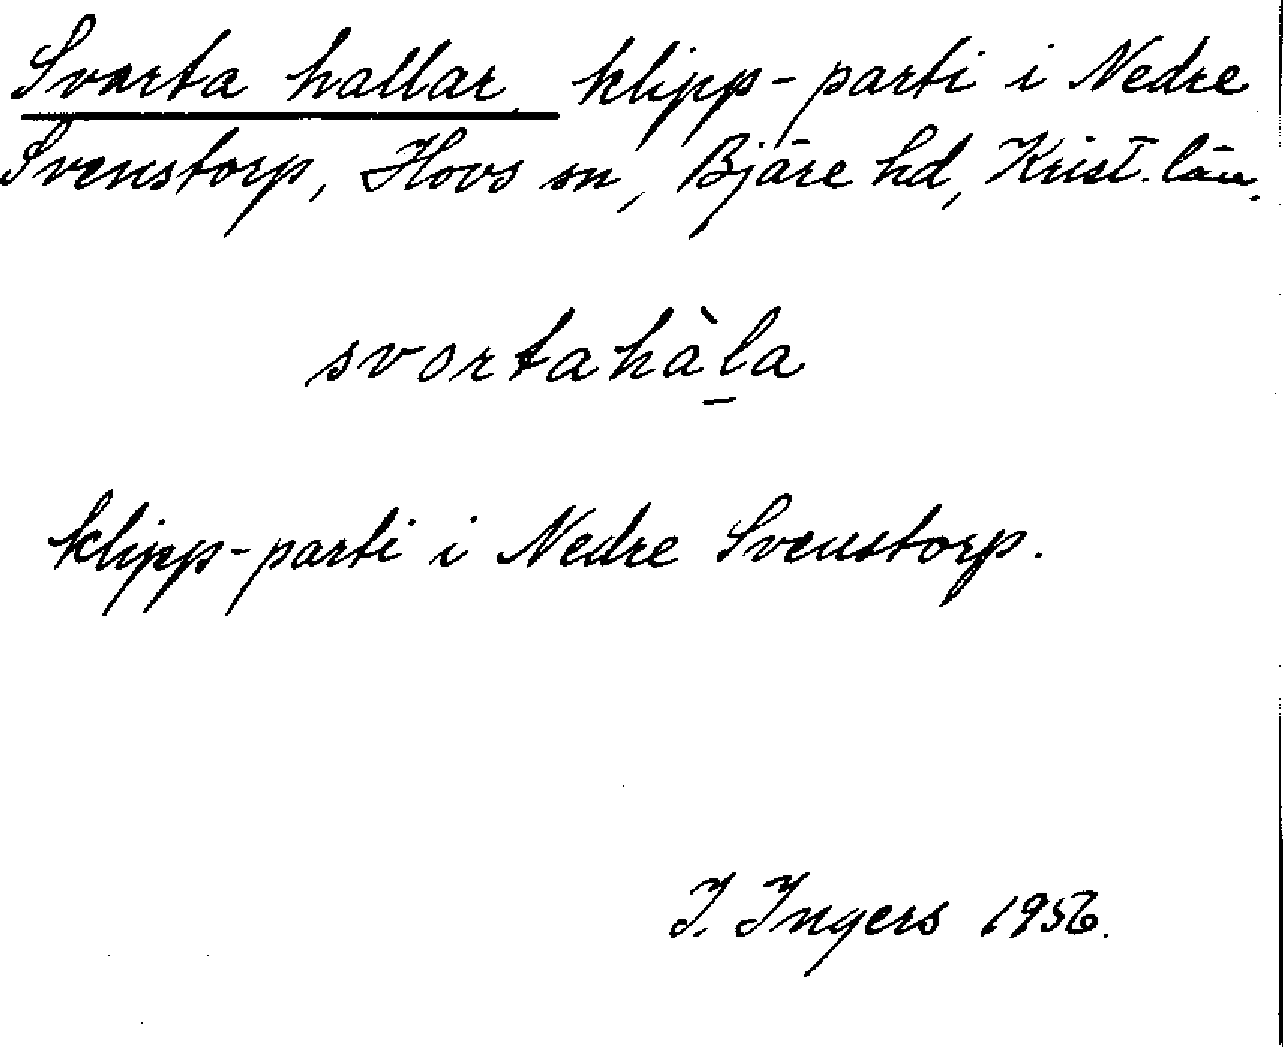 Svarta hallar klipp-parti i Nedre
Svenstorp, Hovs sn, Bjäre hd, Krist. län.
svortahàl̠a
klipp-parti i Nedre Svenstorp.
I. Ingers 1956.